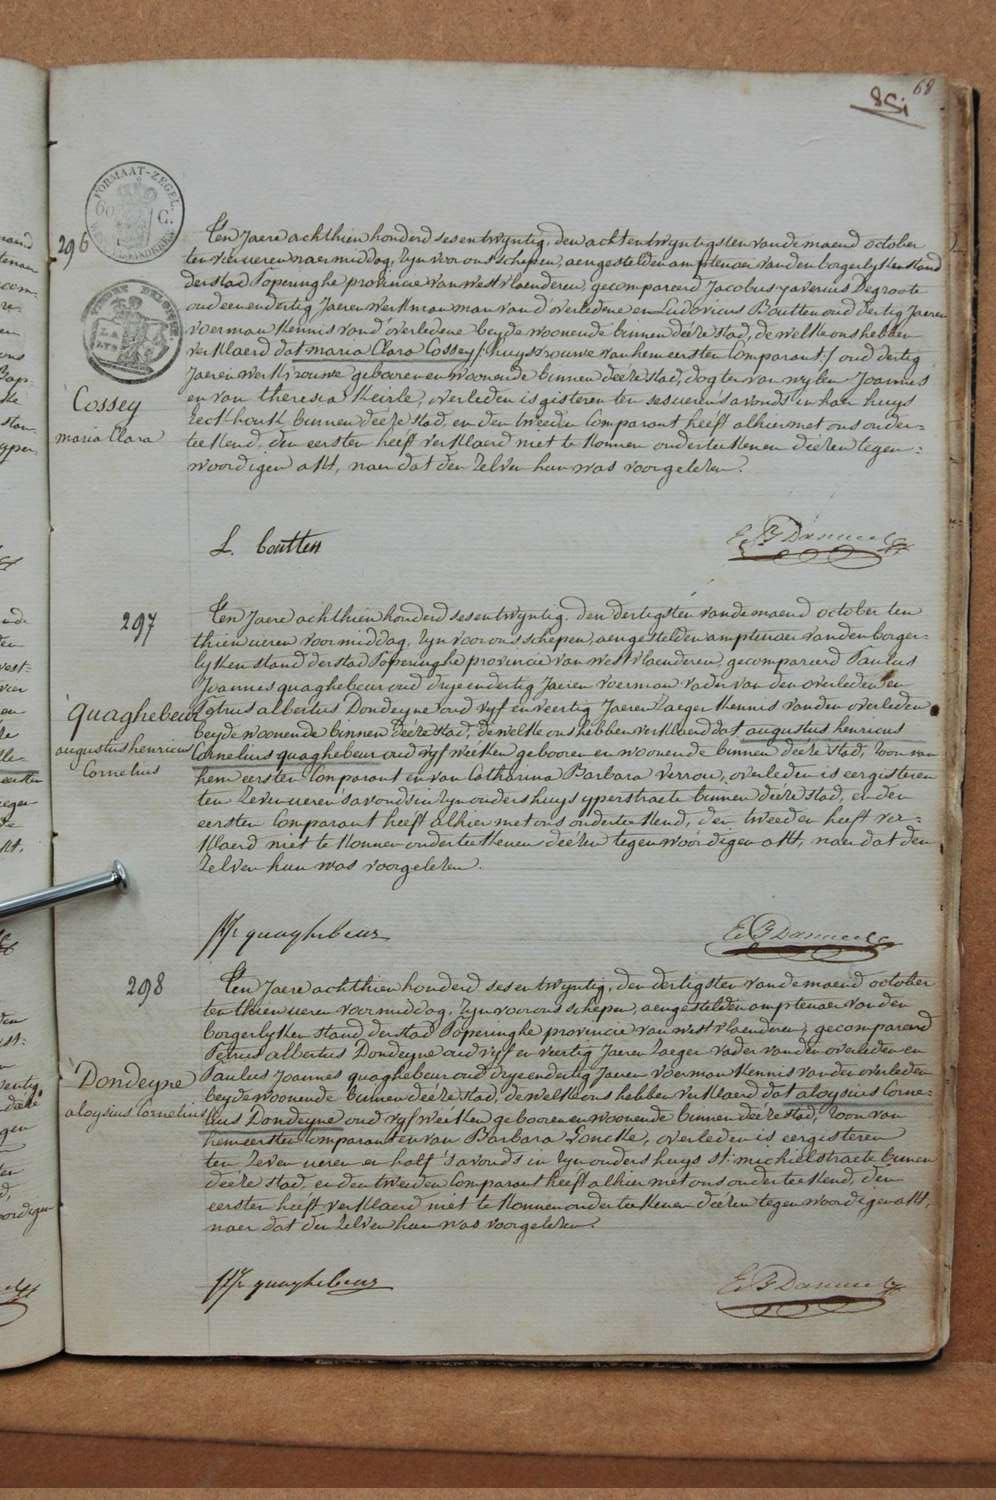 68
296
FORMAAT-ZEGEL.
60 C.
Cossey
maria Clara
Ten Jaere achthien honderd sesentwyntig, den achtentwyntigsten vande maend october
ten vier ueren naermiddag, zyn voor ons schepen, aengestelden amptenaer van den borgerlyken stand
der stad Poperinghe provincie van westvlaenderen, gecompareerd Jacobus xaverius Degroote
oud eenendertig Jaeren werkman man vand'overledene en Ludovicus Boutten oud dertig Jaeren
voerman kennis vand'overledene beyde woonende binnen deéze stad, de welke ons hebben
verklaerd dat maria Clara Cossey /: huysvrouwe van hem eersten Comparant :/ oud dertig
Jaeren werkvrouwe gebooren en woonende binnen deéze stad, dogter van wylen Joannes
en van theresia Keirle, overleden is gisteren ten ses ueren s'avonds in haer huys
binnen deéze stad, en den tweeden Comparant heeft alhier met ons onder-
teekend, den eersten heeft verklaerd niet te konnen onderteekenen deézen tegen-
woordigen akt, naer dat den zelven hun was voorgelezen.
L. boutten
297
quaghebeur
augustus henricus
Cornelius
Ten Jaere achthien honderd sesentwyntig, den dertigsten vande maend october ten
thien ueren voormiddag, zyn voor ons schepen, aengestelden amptenaer van den borger-
lyken stand der stad Poperinghe provincie van westvlaenderen, gecompareerd Paulus
Joannes quaghebeur oud dryeendertig Jaeren voerman vader van den overleden en
Petrus albertus Dondeyne oud vyf en veertig Jaeren zaeger kennis van den overleden
beyde woonende binnen deéze stad, de welke ons hebben verklaerd dat augustus henricus
Cornelius quaghebeur oud vyf weéken gebooren en woonende binnen deéze stad, zoon van
hem eersten Comparant en van Catharina Barbara Verrou, overleden is eergisteren
ten zeven ueren s'avonds in zyn ouders huys yperstraete binnen deéze stad, en den
eersten Comparant heeft alhier met ons onderteekend, den tweeden heeft ver-
klaerd niet te konnen onderteekenen deézen tegenwoordigen akt, naer dat den
zelven hun was voorgelezen.
quaghebeur
298
Dondeyne
aloysius Cornelius
Ten Jaere achthien honderd sesentwyntig, den dertigsten van de maend october
ten thien ueren voormiddag, zyn voor ons schepen, aengestelden amptenaer van den
borgerlyken stand der stad Poperinghe provincie van westvlaenderen, gecompareerd
Petrus albertus Dondeyne oud vyf en veertig Jaeren zaeger vader van den overleden en
Paulus Joannes quaghebeur oud dryeendertig Jaeren voerman kennis van den overleden
beyde woonende binnen deéze stad, de welke ons hebben verklaerd dat aloysius Corne-
lius Dondeyne oud vyf weéken gebooren en woonende binnen deéze stad, zoon van
hem eersten Comparant en van Barbara Loncke, overleden is eergisteren
ten zeven ueren en half s'avonds in zyn ouders huys st. michielstraete binnen
deéze stad, en den tweeden Comparant heeft alhier met ons onderteekend, den
eersten heeft verklaerd niet te konnen onderteekenen deézen tegenwoordigen akt,
naer dat den zelven hun was voorgelezen.
quaghebeur